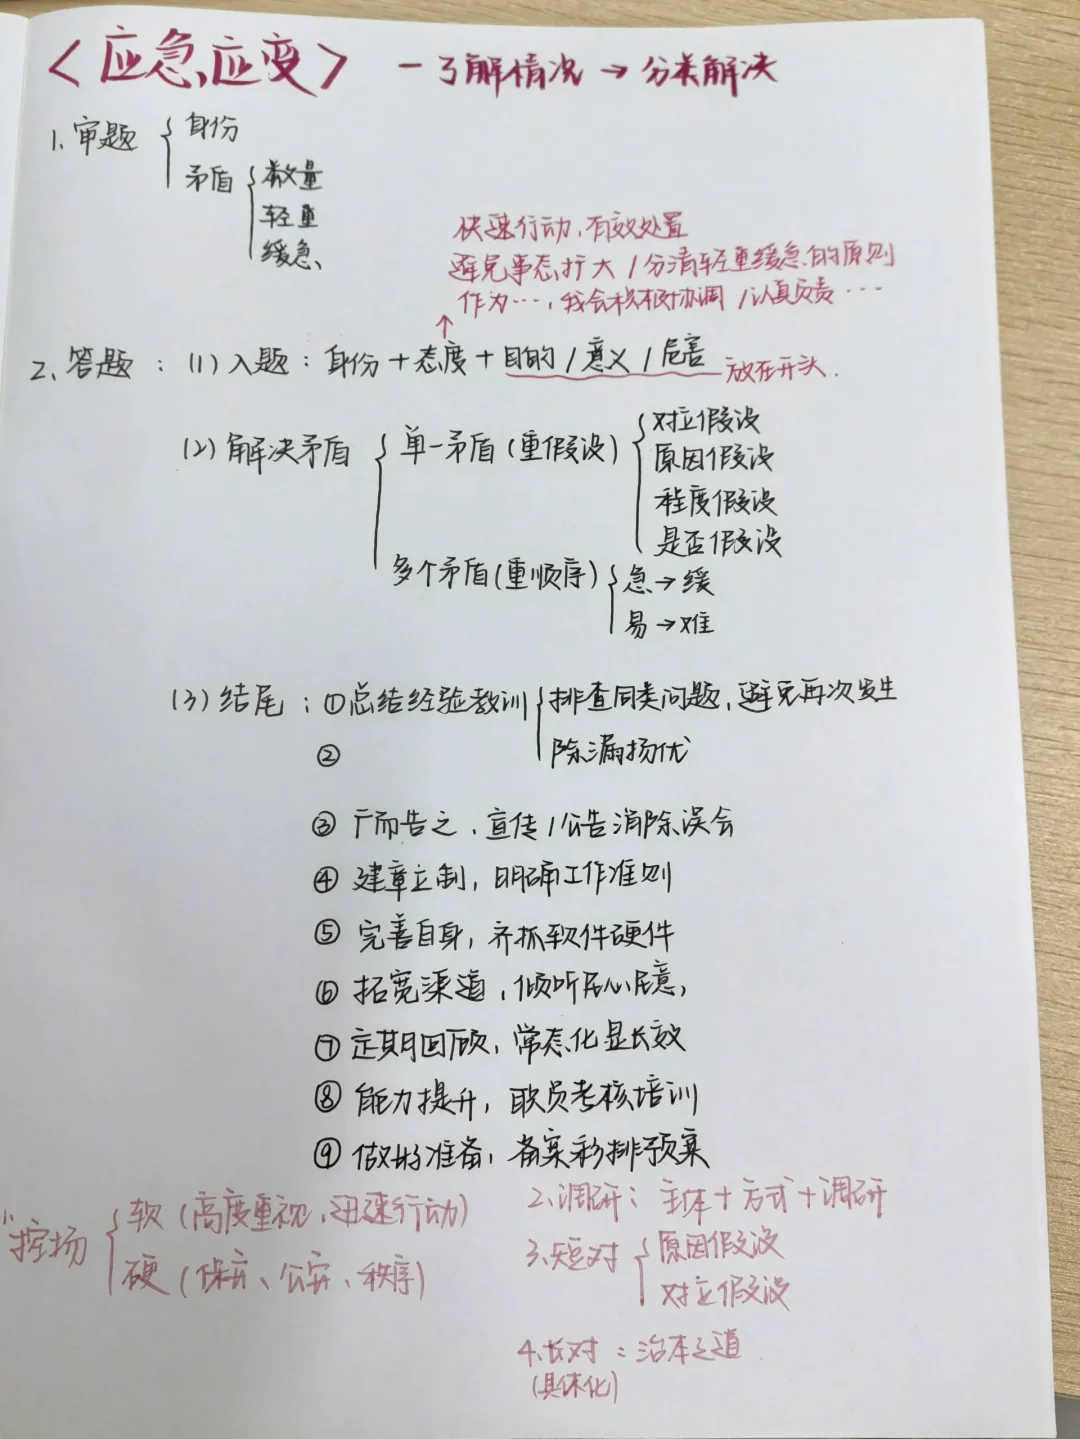 <应急、应变> — 了解情况 → 分类解决
1、审题 { 身份
矛盾 { 数量
轻重
缓急、
快速行动、有效处置
避免事态扩大 / 分清轻重缓急的原则
作为…，我会积极协调 / 认真负责…
↑
2、答题：(1) 入题：身份 + 态度 + 目的 / 意义 / 危害 — 放在开头.
(2) 解决矛盾 { 单一矛盾 (重假设) { 对立假设
原因假设
程度假设
是否假设
多个矛盾 (重顺序) { 急 → 缓
易 → 难
(3) 结尾：① 总结经验教训 { 排查同类问题，避免再次发生
② 除漏扬优
③ 广而告之，宣传 / 公告消除误会
④ 建章立制，明确工作准则
⑤ 完善自身，齐抓软件硬件
⑥ 拓宽渠道，倾听民心民意，
⑦ 定期回顾，常态化显长效
⑧ 能力提升，职员考核培训
⑨ 做好准备，备案彩排预案
1、控场 { 软 (高度重视、迅速行动)
硬 (保安、公安、秩序)
2、调研：主体 + 方式 + 调研
3、短对 { 原因假设
对立假设
4、长对：治本之道
(具体化)